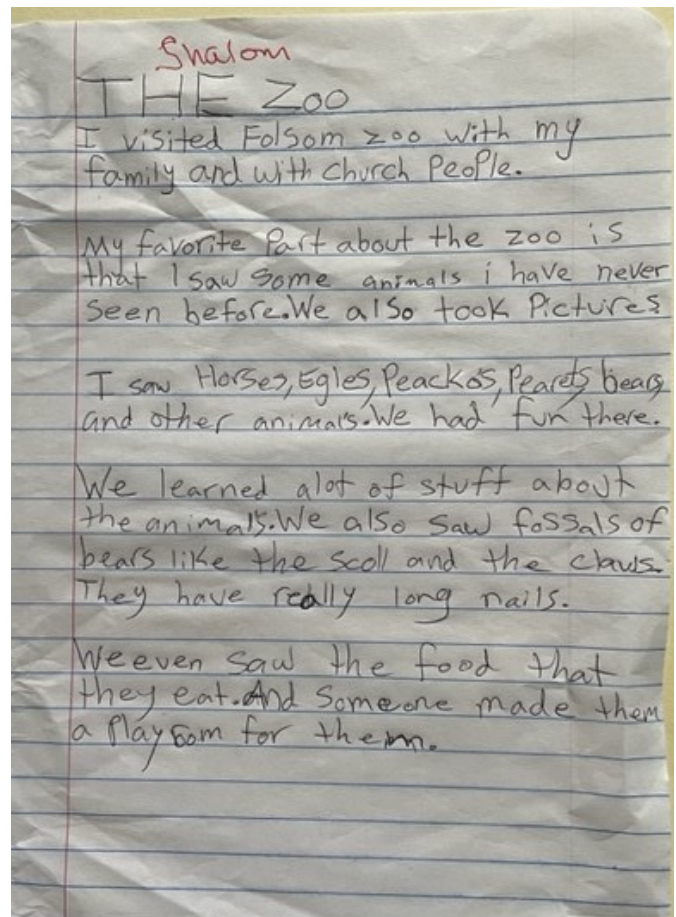 Shalom
THE Zoo
I visited Folsom zoo with my
family and with church People.
My favorite Part about the zoo is
that I saw some animals i have never
seen before.We also took Pictures
I saw Horses,Egles,Peackos,Pearets,bears
and other animals.We had fun there.
We learned alot of stuff about
the animals.We also saw fossals of
bears like the scoll and the claws.
They have really long nails.
We even saw the food that
they eat.And Someone made them
a Playroom for them.